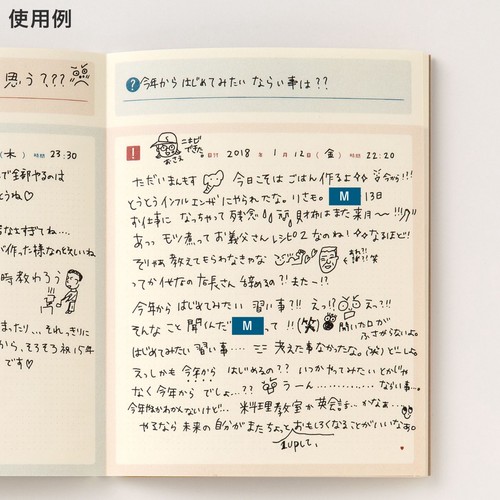 使用例
思う???
今年から はじめてみたい ならい事は??
(木) 時間 23:30
で全部やるのは
とうね♡
なとすぎてね....
が作った様なのとしいね
時教わろう
まったり... それっきりに
から、そろそろ祝15年
です♡
ニキビできた。
おさえ
日付 2018 年 1 月 12 日 (金) 時間 22:20
ただいまんもす 今日こそは ごはん 作るよ 今から!!!
とうとうインフルエンザにやられてたな。りさも。 M 13日
お仕事に なっちゃって 残念 財布はまた来月〜!!!
あっ モツ煮って お義父さんレシピ なのね! なるほど!
そりゃあ教えてもらわなきゃな
ってか代々の店長さん 締めるの?! また〜!?
今年から はじめてみたい 習い事?!! えっ!? えっ?!!
そんなこと 聞くんだ M って!! (笑) 開いた口が
ふさがらないよ。
はじめてみたい 習い事.... 考えた事なかったな。(笑) どーしよ。
えっしかも 今年から はじめるの?? いつかやってみたいとかじゃ
なく 今年から でしょ..?? うーん.............. ならい事...。
今年作かわかんないけど... 料理教室か英会話... かなぁ...
やるなら 未来の 自分が またちょっと おもしろくなることがいいなぁ。
1upして、